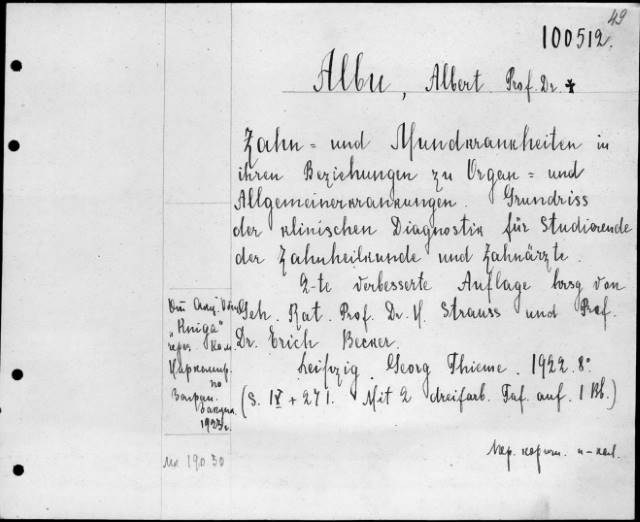 49
100512.
Albu, Albert Prof. Dr.
Zahn- und Mundkrankheiten in
ihren Beziehungen zu Organ- und
Allgemeinerkrankungen. Grundriss
der klinischen Diagnostik für Studierende
der Zahnheilkunde und Zahnärzte.
2-te verbesserte Auflage hrsg von
Geh. Rat. Prof. Dr. H. Strauss und Prof.
Dr. Erich Becker.
Leipzig. Georg Thieme. 1922. 8°
(S. IV + 271. Mit 2 dreifarb. Taf. auf. 1 Bl.)
От Акц. О-ва
"Kniga"
через Ком.
по
Загран.
1923 г.
190.30